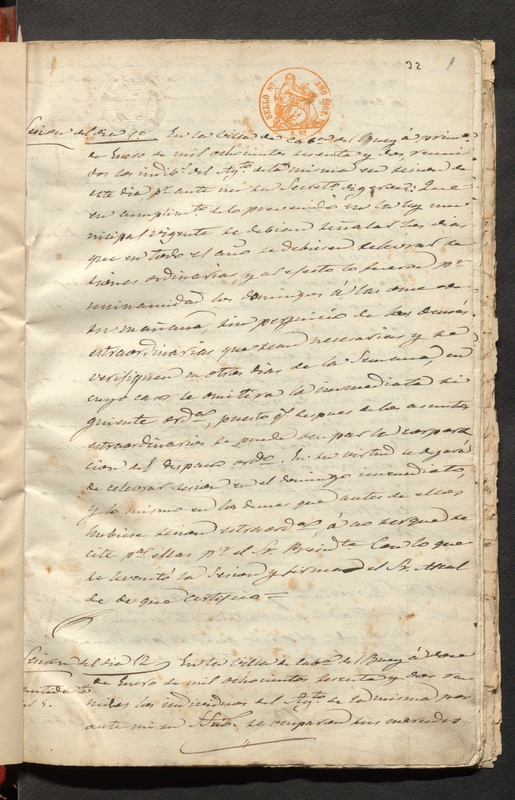 32
SELLO 9º AÑO 1862.
Sesion del dia 1º En la villa de Cabª del Buey á primº
de Enero de mil ochocientos sesenta y dos, reuni
dos los indibˢ del Aytº de la misma en sesion de
este dia pʳ ante mi su Secretº digeron: Que
en cumplimtº de lo prevenido en la ley mu
nicipal vigente se debian señalar los dias
que en todo el año se debiesen celebrar se
siones ordinarias, y al efecto lo fueron pʳ
unanimidad los domingos á las once de
su mañana, sin perjuicio de las demas
estraordinarias que sean necesarias y se
verifiquen en otros dias de la Semana, en
cuyo caso se omitira la inmediata si
guiente ordª, puesto qᵉ despues de los asuntos
estraordinarios se puede ocupar la corpora
cion del despacho ordº. En su virtud se dejará
de celebrar sesion en el domingo inmediato,
y lo mismo en los demas que antes de ellos
hubiese sesion estraordª, á no ser que se
cite pª ellas pʳ el Sr. Presidte Con lo que
se levantó la Sesion y firma el Sr. Alcal
de de que certifico=
Sesion del dia 12 En la villa de Cabª del Buey á doce
de Enero de mil ochocientos sesenta y dos reu
nidos los individuos del Aytº de la misma por
ante mi su Sriº. se ocuparon sus mercedes